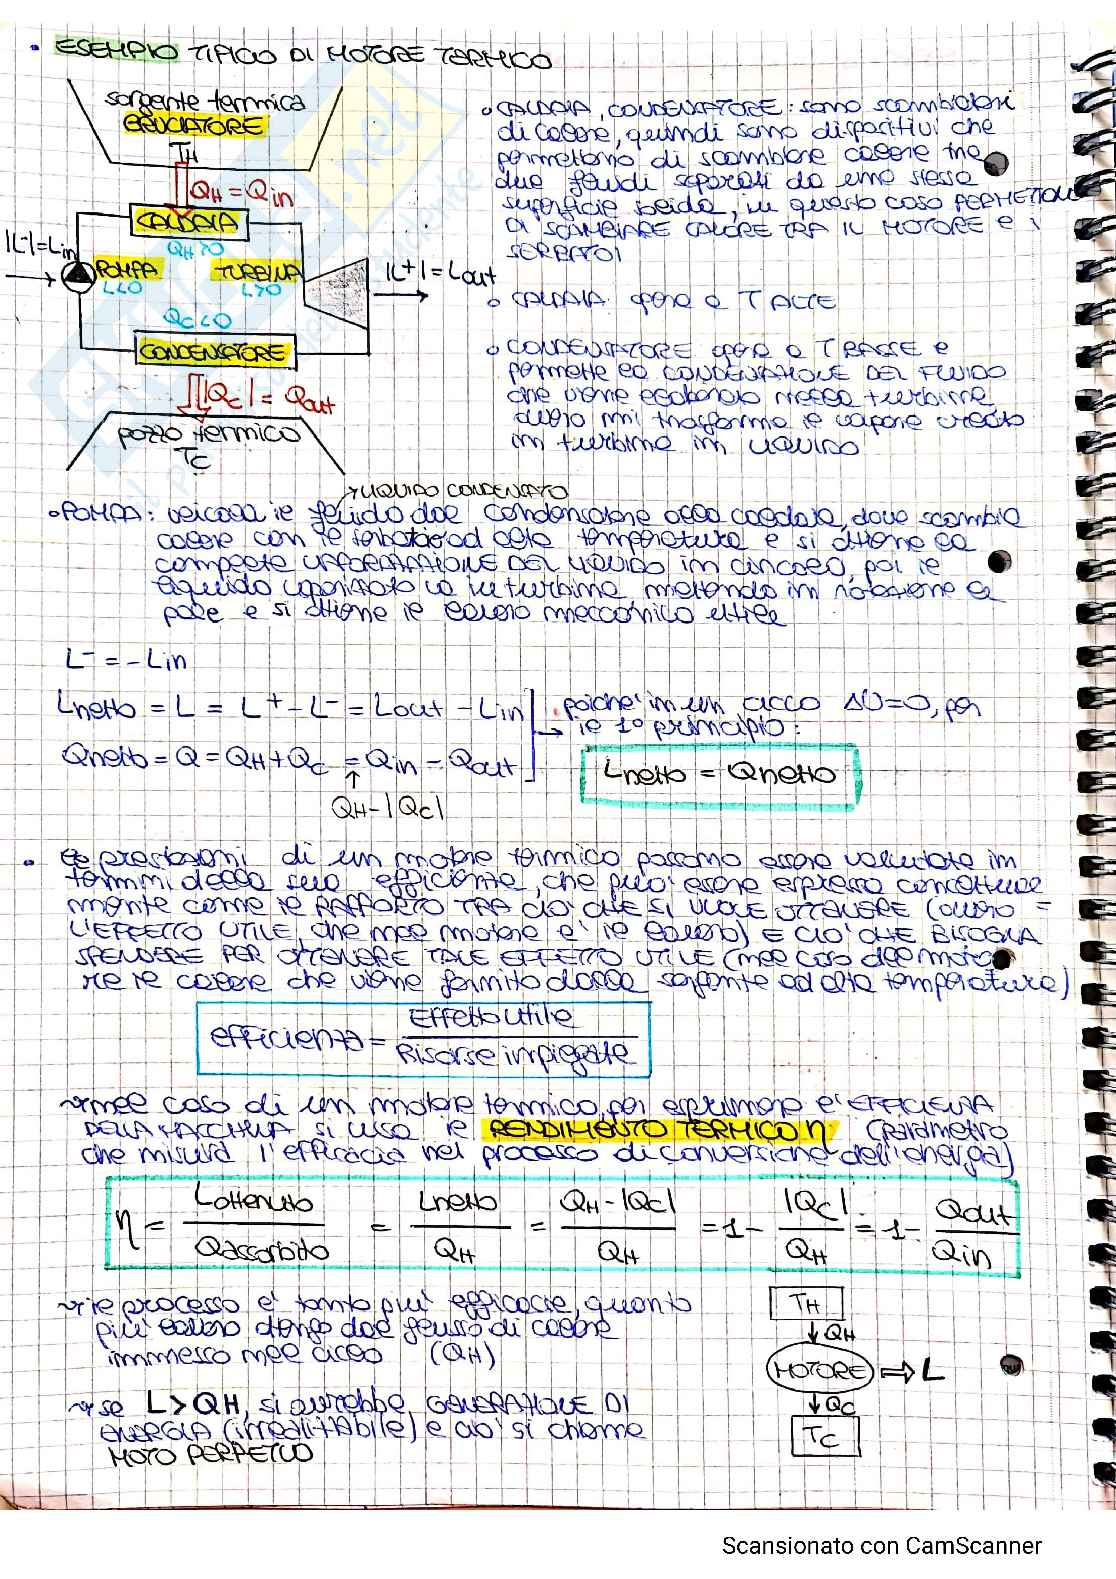 • ESEMPIO TIPICO DI MOTORE TERMICO
sorgente termica
BRUCIATORE
TH
QH = Qin
CALDAIA
QH>0
|L-|=Lin
POMPA
L<0
TURBINA
L>0
|L+| = Lout
QC<0
CONDENSATORE
|QC| = Qout
pozzo termico
TC
o CALDAIA, CONDENSATORE: sono scambiatori
di calore, quindi sono dispositivi che
permettono di scambiare calore tra
due fluidi separati da una stessa
superficie solida, in questo caso PERMETTONO
DI SCAMBIARE CALORE TRA IL MOTORE E I
SERBATOI
o CALDAIA opera a T ALTE
o CONDENSATORE opera a T BASSE e
permette la CONDENSAZIONE DEL FLUIDO
che viene elaborato nella turbina
ovvero mi trasforma il vapore creato
in turbina in LIQUIDO
LIQUIDO CONDENSATO
o POMPA: veicola il fluido dal condensatore alla caldaia, dove scambia
calore con il serbatoio ad alta temperatura e si ottiene la
completa VAPORIZZAZIONE DEL LIQUIDO in caldaia, poi il
liquido vaporizzato va in turbina mettendo in rotazione le
pale e si ottiene il lavoro meccanico utile
L- = -Lin
Lnetto = L = L+ - L- = Lout - Lin
poiché in un ciclo ΔU=0, per
il 1° principio:
Qnetto = Q = QH+QC = Qin - Qout
QH-|QC|
Lnetto = Qnetto
• Le prestazioni di un motore termico possono essere valutate in
termini della sua efficienza, che può essere espressa concettual
mente come il RAPPORTO TRA CIO' CHE SI VUOLE OTTENERE (ovvero =
L'EFFETTO UTILE, che nel motore e' il lavoro) E CIO' CHE BISOGNA
SPENDERE PER OTTENERE TALE EFFETTO UTILE (nel caso del moto
re il calore che viene fornito dalla sorgente ad alta temperatura)
efficienza = Effetto utile / Risorse impiegate
nel caso di un motore termico, per esprimere l'EFFICIENZA
DELLA MACCHINA si usa il RENDIMENTO TERMICO η (parametro
che misura l'efficacia nel processo di conversione dell'energia)
η = Lottenuto / Qassorbito = Lnetto / QH = QH-|QC| / QH = 1 - |QC| / QH = 1 - Qout / Qin
il processo e' tanto piu' efficace, quanto
piu' lavoro ottengo dal flusso di calore
immesso nel ciclo (QH)
se L>QH, si avrebbe GENERAZIONE DI
ENERGIA (irrealizzabile) e cio' si chiama
MOTO PERPETUO
TH
QH
MOTORE ⇒ L
QC
TC
Scansionato con CamScanner